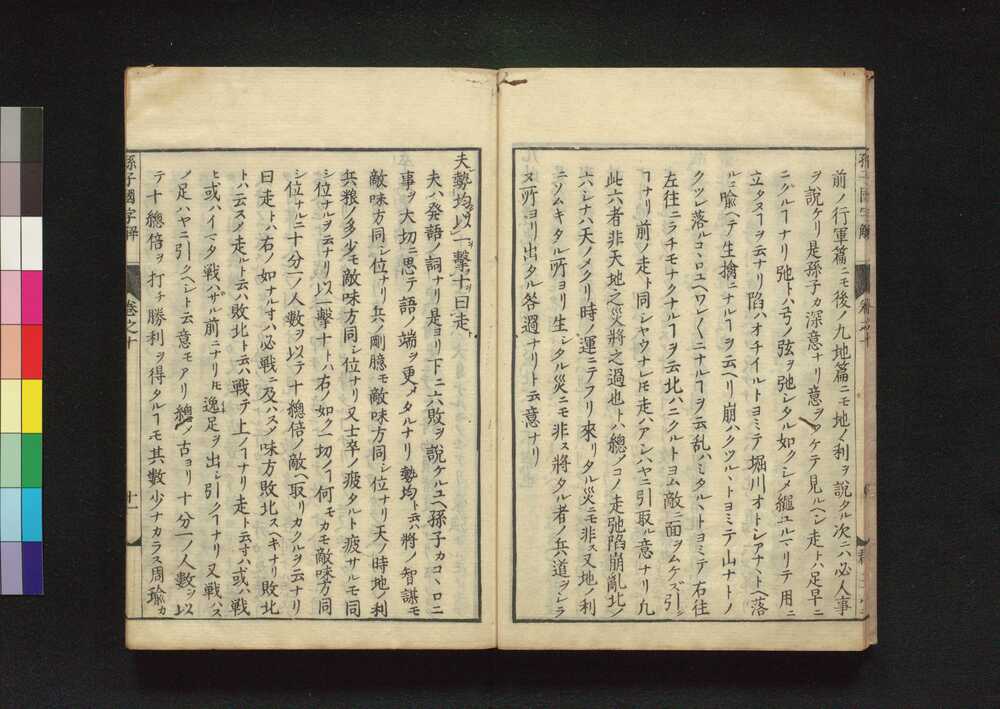 前ノ行軍篇ニモ後ノ九地篇ニモ地ノ利ヲ說タル次ニハ必ス人事
ヲ說ケリ是孫子カ深意ナリ意ヲツケテ見ルヘシ走トハ足早ニ
ニクルヿナリ弛トハ弓ノ弦ヲ弛シタル如クシメ繩ユルマリテ用ニ
立タヌヿヲ云ナリ陷ハオチイルトヨミテ堀川オトシアナヘ落
ルニ喩ヘテ生擒ニナルヿヲ云ヘリ崩ハクツルヽトヨミテ山ナトノ
クツレ落ルコヽロユヘワレ〱ニナルヿヲ云乱ハミタルヽトヨミテ右往
左往ニラチモナクナルヿヲ云北ハニクルトヨム敵ニ面ヲムケズ引
ヿナリ前ノ走ト同シヤウナレ𪜈走ハアシハヤニ引取ル意ナリ凢
此六者非天地之災將之過也トハ總〆コノ走弛陷崩亂北ノ
六シナハ天ノメクリ時ノ運ニテフリ來リタル災ニモ非ス又地ノ利
ニソムキタル所ヨリ生シタル災ニモ非ス將タル者ノ兵道ヲシラ
ヌ所ヨリ出タル咎過ナリト云意ナリ
孫子國字解
卷之十
十一
夫勢均以一擊十曰走
夫ハ発語ノ詞ナリ是ヨリ下ニ六敗ヲ說ケルユヘ孫子カコヽロニ
事ヲ大切ニ思テ語ノ端ヲ更メタルナリ勢均ト云ハ將ノ智謀モ
敵味方同シ位ナリ兵ノ剛臆モ敵味方同シ位ナリ天ノ時地ノ利
兵粮ノ多少モ敵味方同シ位ナリ又士卒ノ疲タルト疲サルモ同
シ位ナルヲ云ナリ以一擊十トハ右ノ如ク一切ノヿ何モカモ敵味方同
シ位ナルニ十分一ノ人數ヲ以テ十總倍ノ敵ヘ取リカクルヲ云ナリ
曰走トハ右ノ如ナルヿハ必戰ニ及ハス〆味方敗北スヘキナリ敗北
トハ云ス〆走ルト云ハ敗北ト云ハ戰テ上ノヿナリ走ト云ヿハ或ハ戰
ヒ或ハイマタ戰ハザル前ニナリ𪜈逸足ヲ出シ引クヿナリ又戰ハス
〆足ハヤニ引クヘシト云意モアリ總〆古ヨリ十分一ノ人數ヲ以
テ十總倍ヲ打チ勝利ヲ得タルヿモ其數少ナカラス周瑜カ